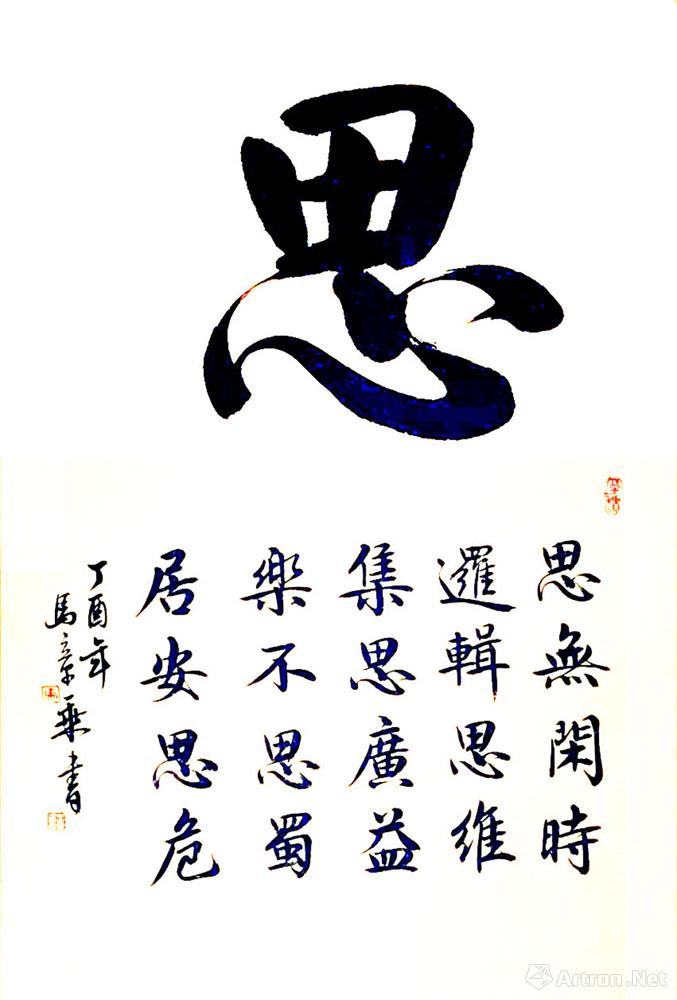 思
思無閑時
邏輯思維
集思廣益
樂不思蜀
居安思危
丁酉年
馬章乘書
Artron.Net